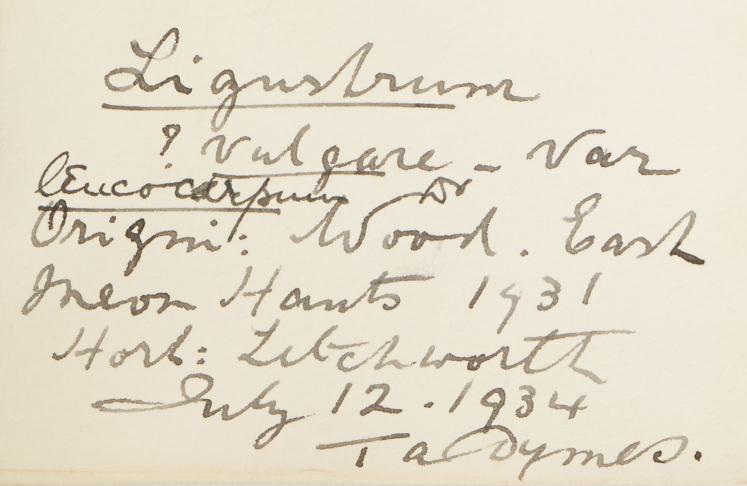 Ligustrum
? vulgare - var
leucocarpum
Origin: Wood. East
Meon Hants 1931
Hort: Letchworth
July 12. 1934
T a Dymes.